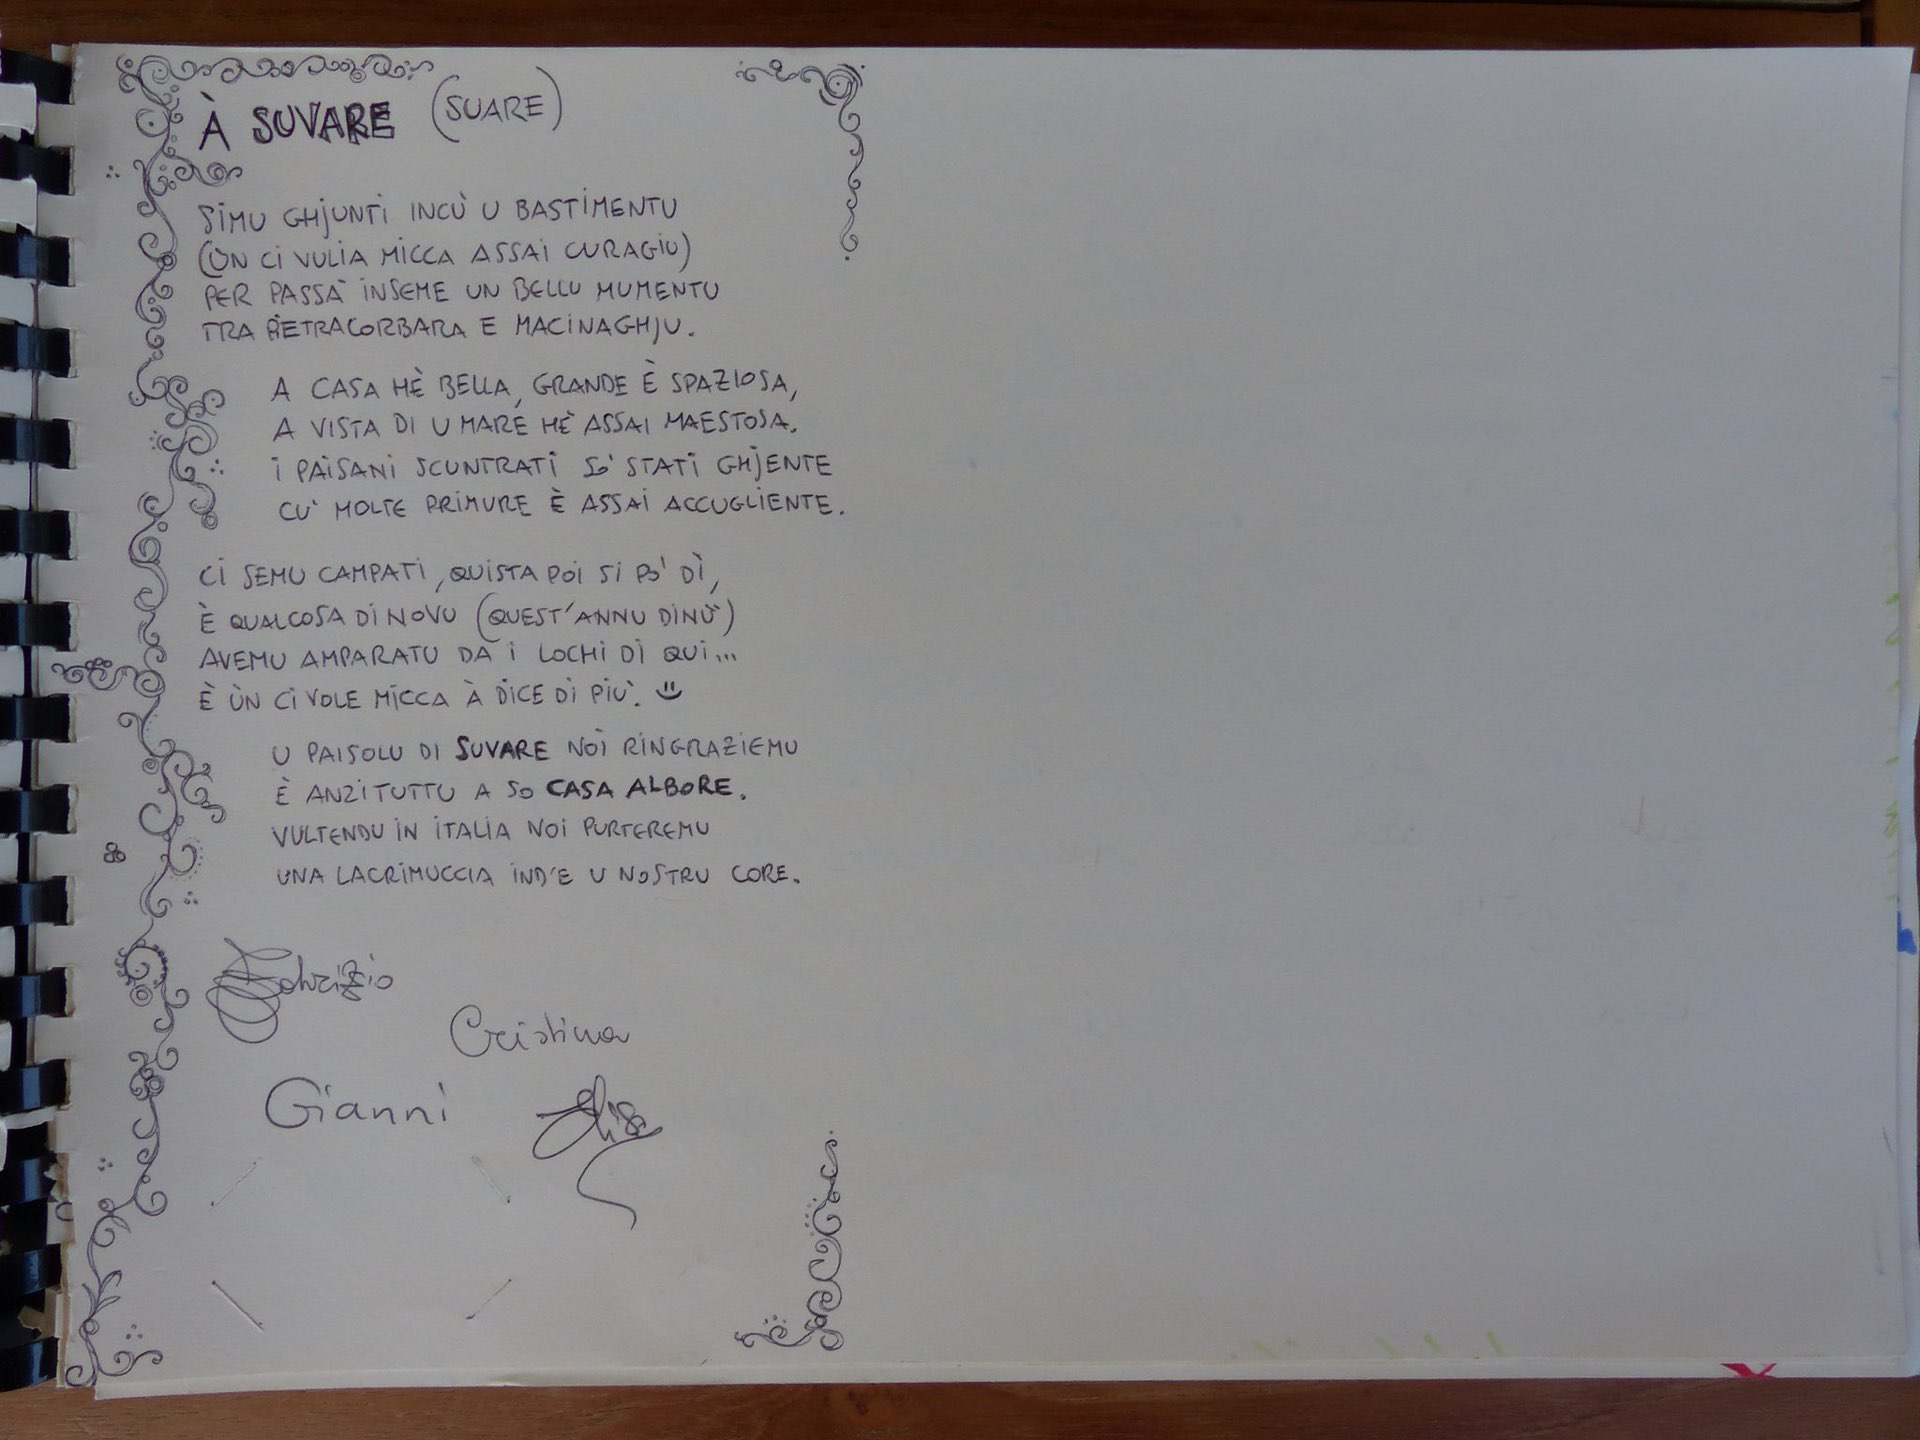 À SUVARE (SUARE)
SIMU GHJUNTI INCÙ U BASTIMENTU
(ÙN CI VULIA MICCA ASSAI CURAGIU)
PER PASSÀ INSEME UN BELLU MUMENTU
TRA PIETRACORBARA E MACINAGHJU.
A CASA HÈ BELLA, GRANDE È SPAZIOSA,
A VISTA DI U MARE HÈ ASSAI MAESTOSA.
I PAISANI SCUNTRATI SO' STATI GHJENTE
CU' MOLTE PRIMURE È ASSAI ACCUGLIENTE.
CI SEMU CAMPATI, QUISTA POI SI PO' DÌ,
È QUALCOSA DI NOVU (QUEST'ANNU DINÙ)
AVEMU AMPARATU DA I LOCHI DI QUI...
È ÙN CI VOLE MICCA À DICE DI PIÙ. :)
U PAISOLU DI SUVARE NOI RINGRAZIEMU
È ANZITUTTU A SO CASA ALBORE.
VULTENDU IN ITALIA NOI PURTEREMU
UNA LACRIMUCCIA IND'E U NOSTRU CORE.
Fabrizio
Cristina
Gianni
Elisa